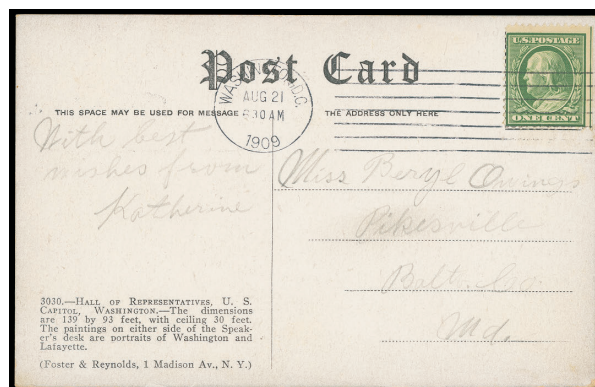 Post Card
WASHINGTON, D.C.
AUG 21
8 30 AM
1909
U.S. POSTAGE
ONE CENT
THIS SPACE MAY BE USED FOR MESSAGE
THE ADDRESS ONLY HERE
With best
wishes from
Katherine
Miss Beryl Owings
Pikesville
Balto. Co.
Md.
3030.—HALL OF REPRESENTATIVES, U. S.
CAPITOL, WASHINGTON.—The dimensions
are 139 by 93 feet, with ceiling 30 feet.
The paintings on either side of the Speak-
er's desk are portraits of Washington and
Lafayette.
(Foster & Reynolds, 1 Madison Av., N. Y.)